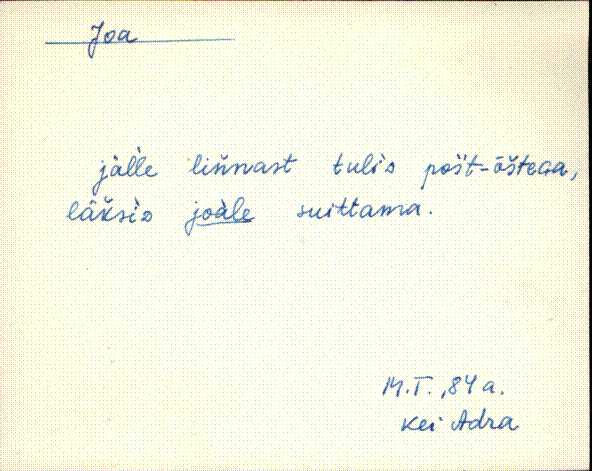 Joa
jälle liñnast tulìs pošt-õštega,
läksìs joàle suittama.
M.T., 84 a.
Kei Adra